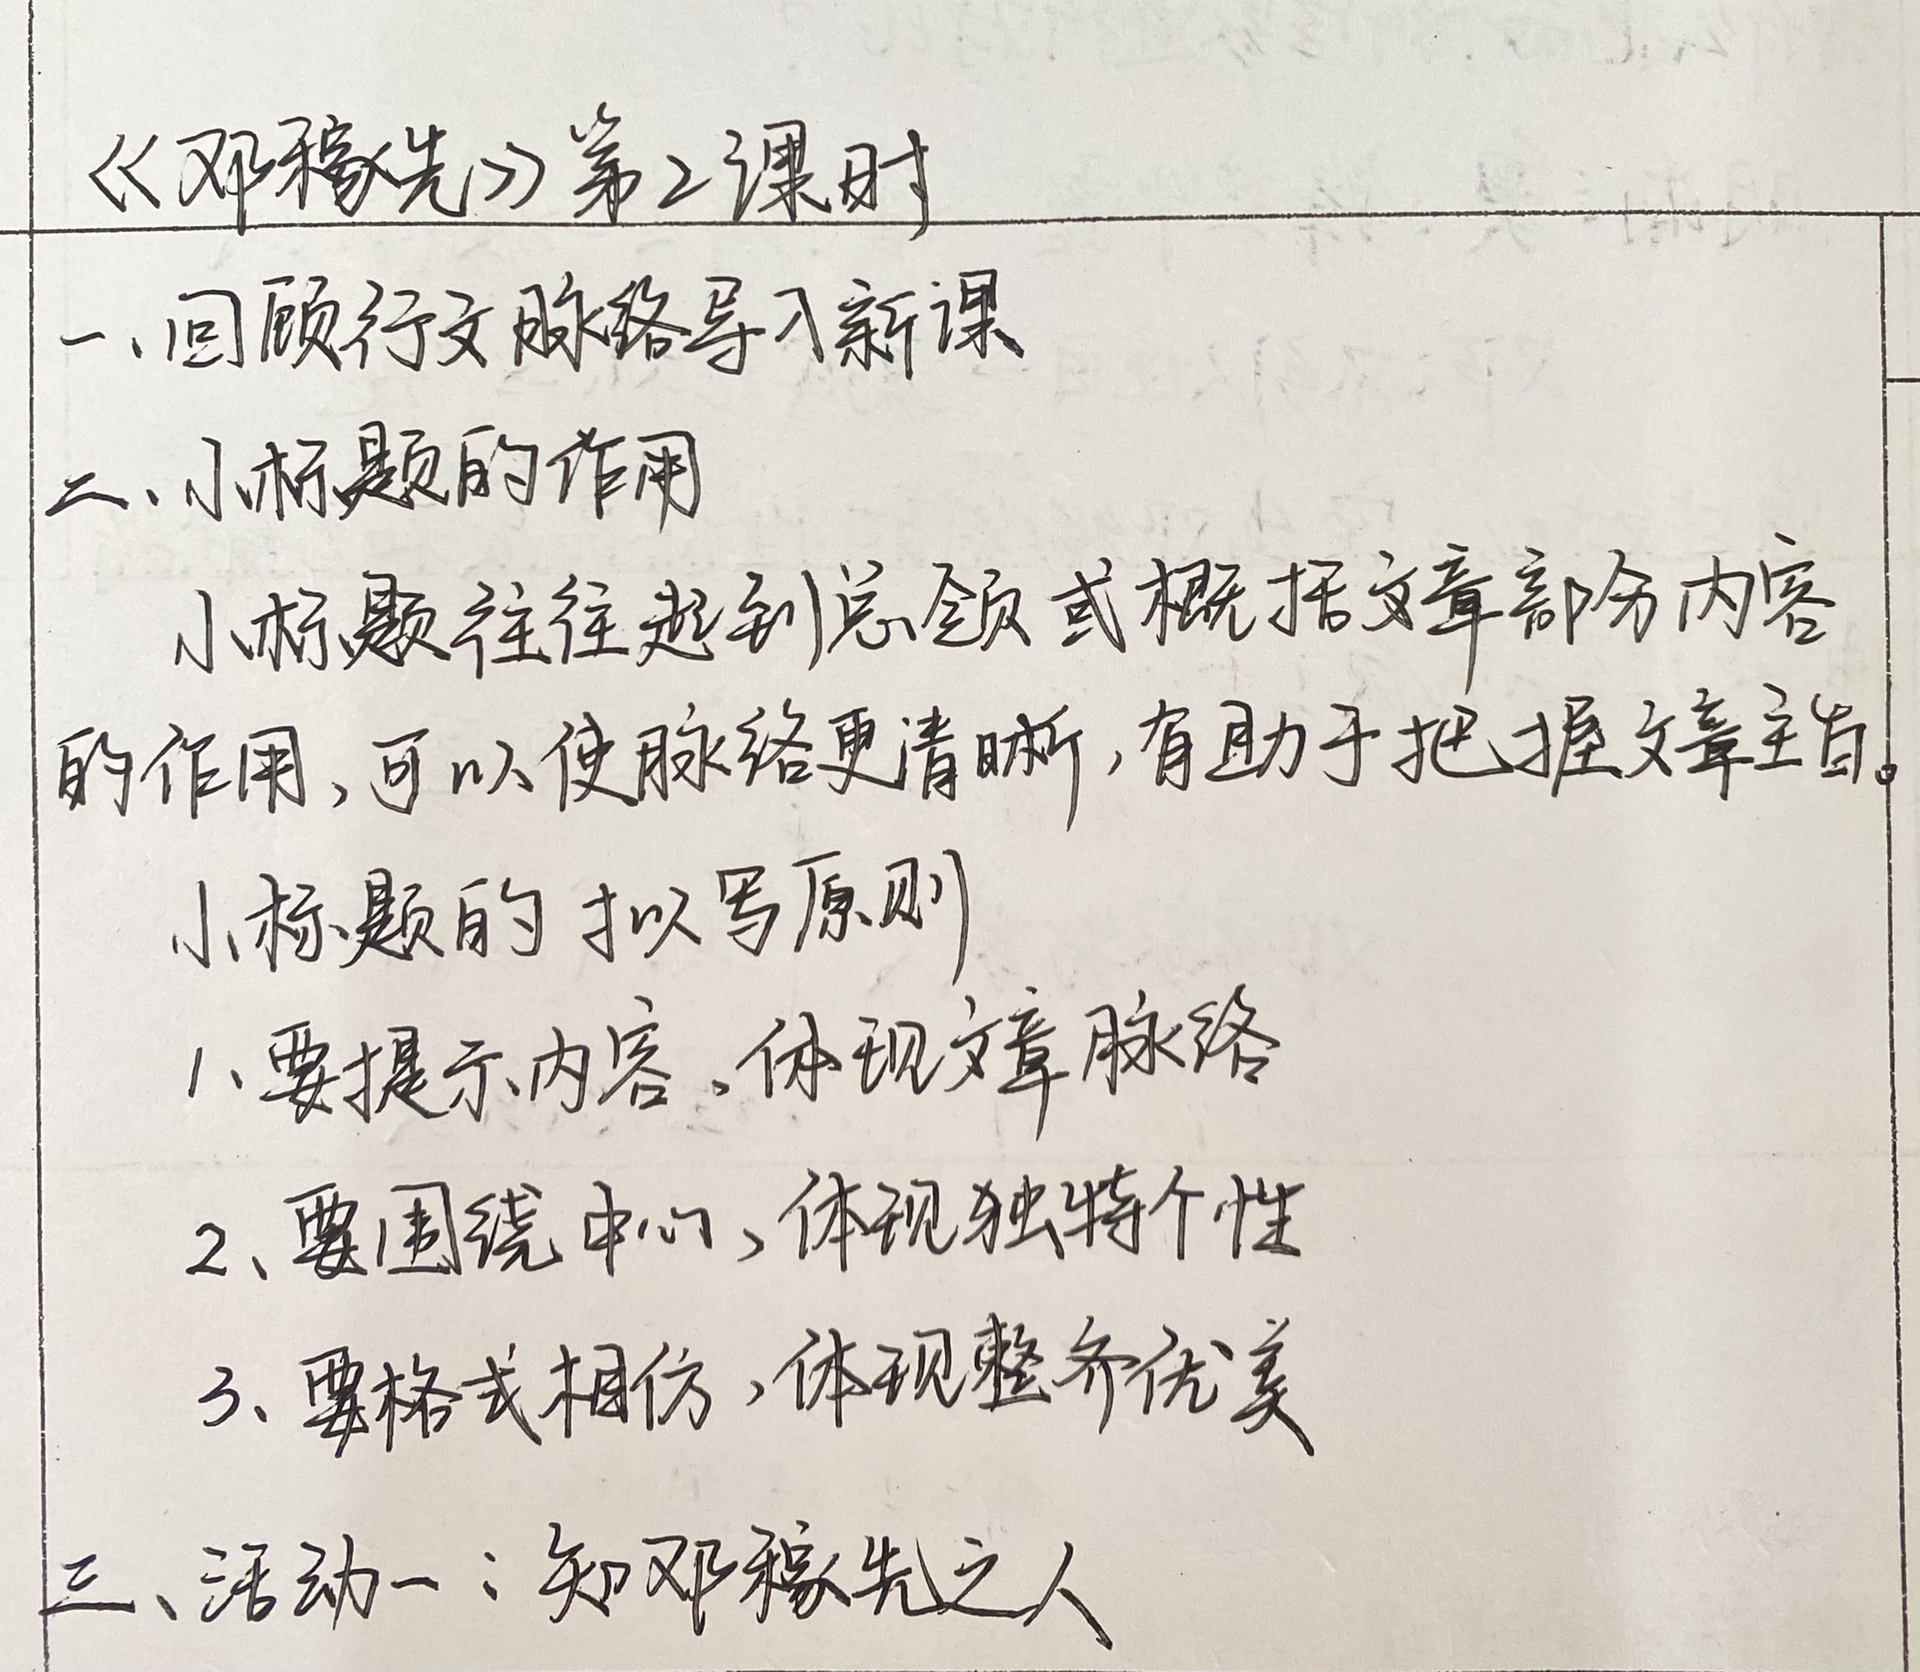 《邓稼先》第2课时
一、回顾行文脉络导入新课
二、小标题的作用
小标题往往起到总领或概括文章部分内容
的作用,可以使脉络更清晰,有助于把握文章主旨。
小标题的拟写原则
1、要提示内容,体现文章脉络
2、要围绕中心,体现独特个性
3、要格式相仿,体现整齐优美
三、活动一:知邓稼先之人